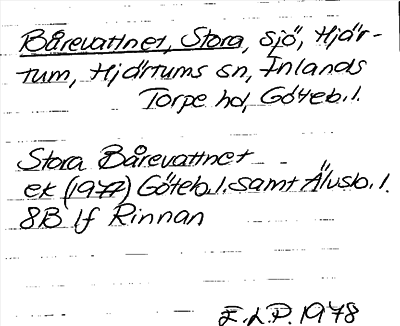 Bårevattnet, Stora, sjö, Hjär-
tum, Hjärtums sn, Inlands
Torpe hd, Göteb.l.
Stora Bårevattnet
ek (1977) Göteb.l. samt Älvsb.l.
8B 1f Rinnan
E.L.P. 1978